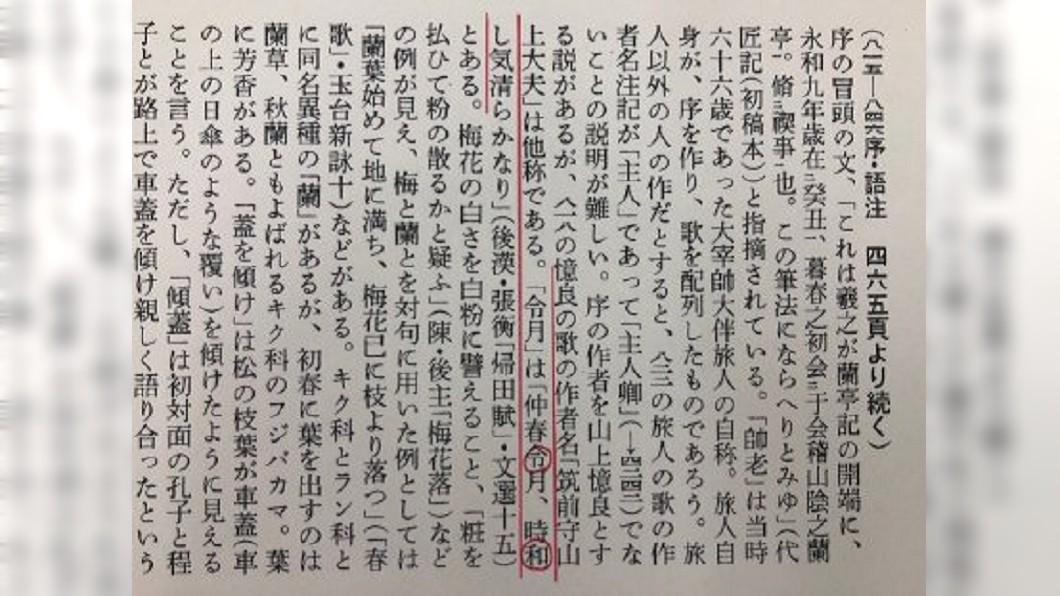 (八一五―八四六序・語注 四六五頁より続く)
序の冒頭の文、「これは羲之が蘭亭記の開端に、
永和九年歳在二癸丑一、暮春之初会三于会稽山陰之蘭
亭一。脩二禊事一也。この筆法にならへりとみゆ」(代
匠記(初稿本))と指摘されている。「帥老」は当時
六十六歳であった大宰帥大伴旅人の自称。旅人自
身が、序を作り、歌を配列したものであろう。旅
人以外の人の作だとすると、八二二の旅人の歌の作
者名注記が「主人」であって「主人卿」でな
いことの説明が難しい。序の作者を山上憶良とす
る説があるが、八一八の憶良の歌の作者名「筑前守山
上大夫」は他称である。「令月」は「仲春令月、時和
し気清らかなり」(後漢・張衡「帰田賦」・文選十五)
とある。梅花の白さを白粉に譬えること、「粧を
払ひて粉の散るかと疑ふ」(陳・後主「梅花落」)など
の例が見え、梅と蘭とを対句に用いた例としては
「蘭葉始めて地に満ち、梅花已に枝より落つ」(「春
歌」・玉台新詠十)などがある。キク科とラン科と
に同名異種の「蘭」があるが、初春に葉を出すのは
蘭草、秋蘭ともよばれるキク科のフジバカマ。葉
に芳香がある。「蓋を傾け」は松の枝葉が車蓋(車
の上の日傘のような覆い)を傾けたように見える
ことを言う。ただし、「傾蓋」は初対面の孔子と程
子とが路上で車蓋を傾け親しく語り合ったという